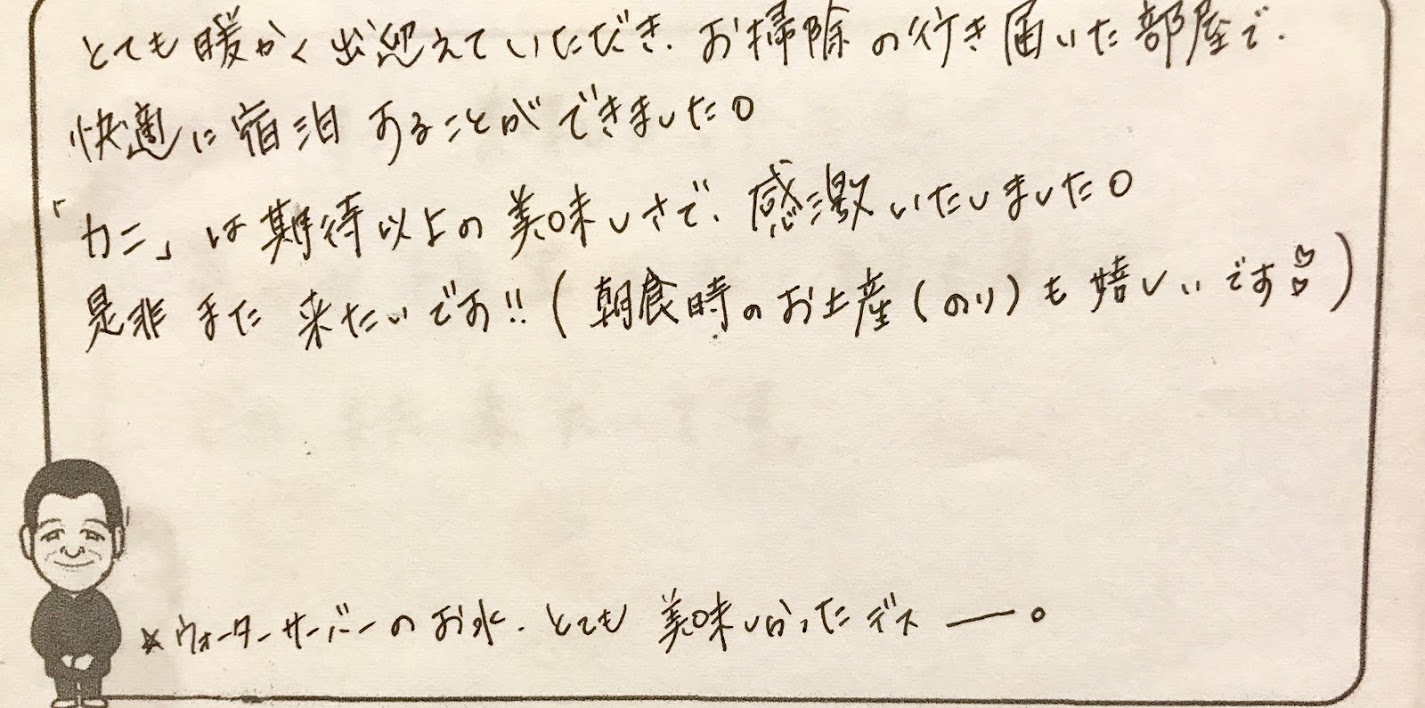 とても暖かく出迎えていただき、お掃除の行き届いた部屋で、
快適に宿泊することができました。
「カニ」は期待以上の美味しさで、感激いたしました。
是非また来たいです!!(朝食時のお土産(のり)も嬉しいです♡♡)
☆ウォーターサーバーのお水、とても美味しかったデスー。